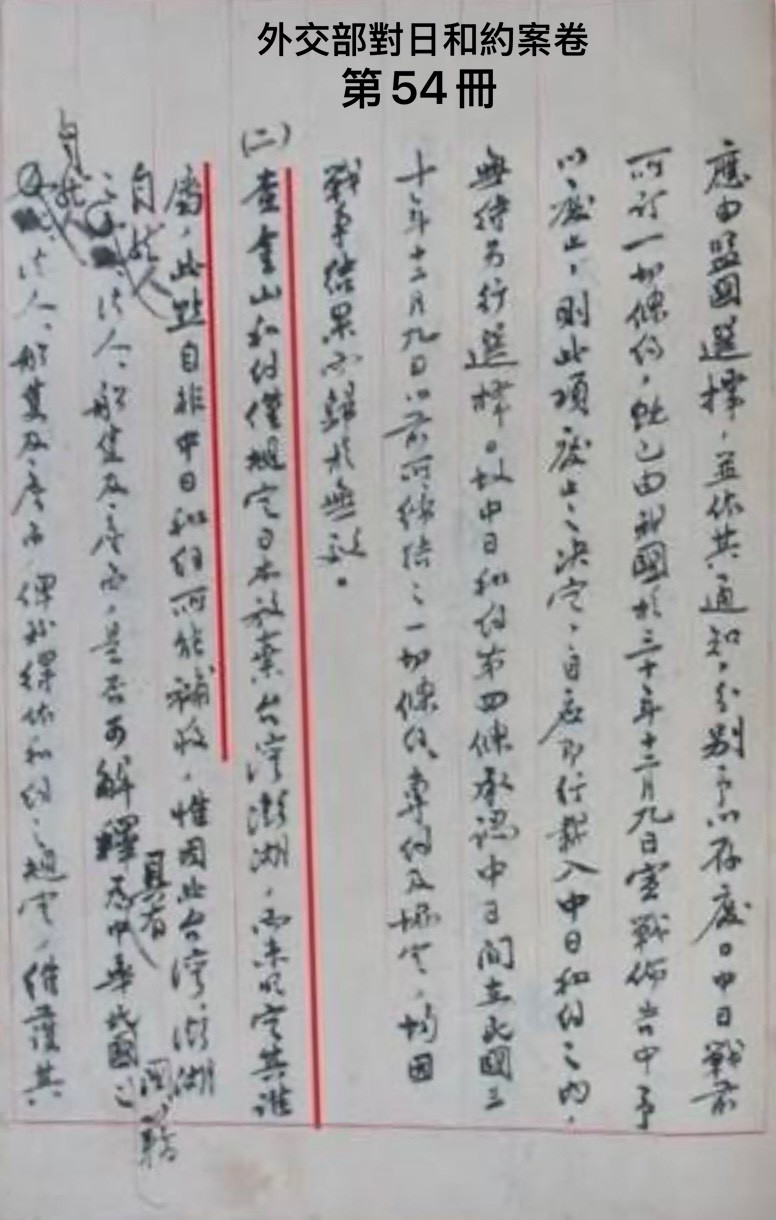 外交部對日和約案卷
第54冊
應由盟國選擇,並依其通知,分別予以存廢。中日戰前
所訂一切條約,既已由我國於三十年十二月九日宣戰佈告中予
以廢止,則此項廢止之決定,自應即行載入中日和約之內,
無待另行選擇。故中日和約第四條承認中日間在民國三
十年十二月九日以前所締結之一切條約、專約及協定,均因
戰爭結果而歸於無效。
(二)查金山和約僅規定日本放棄台灣澎湖,而未明定其誰
屬,此點自非中日和約所能補救。惟因此台灣、澎湖
之自然人、法人、船隻及產品,是否可解釋為具有中華民國之國籍
自然人、法人、船隻及產品,俾於得依和約之規定,維護其